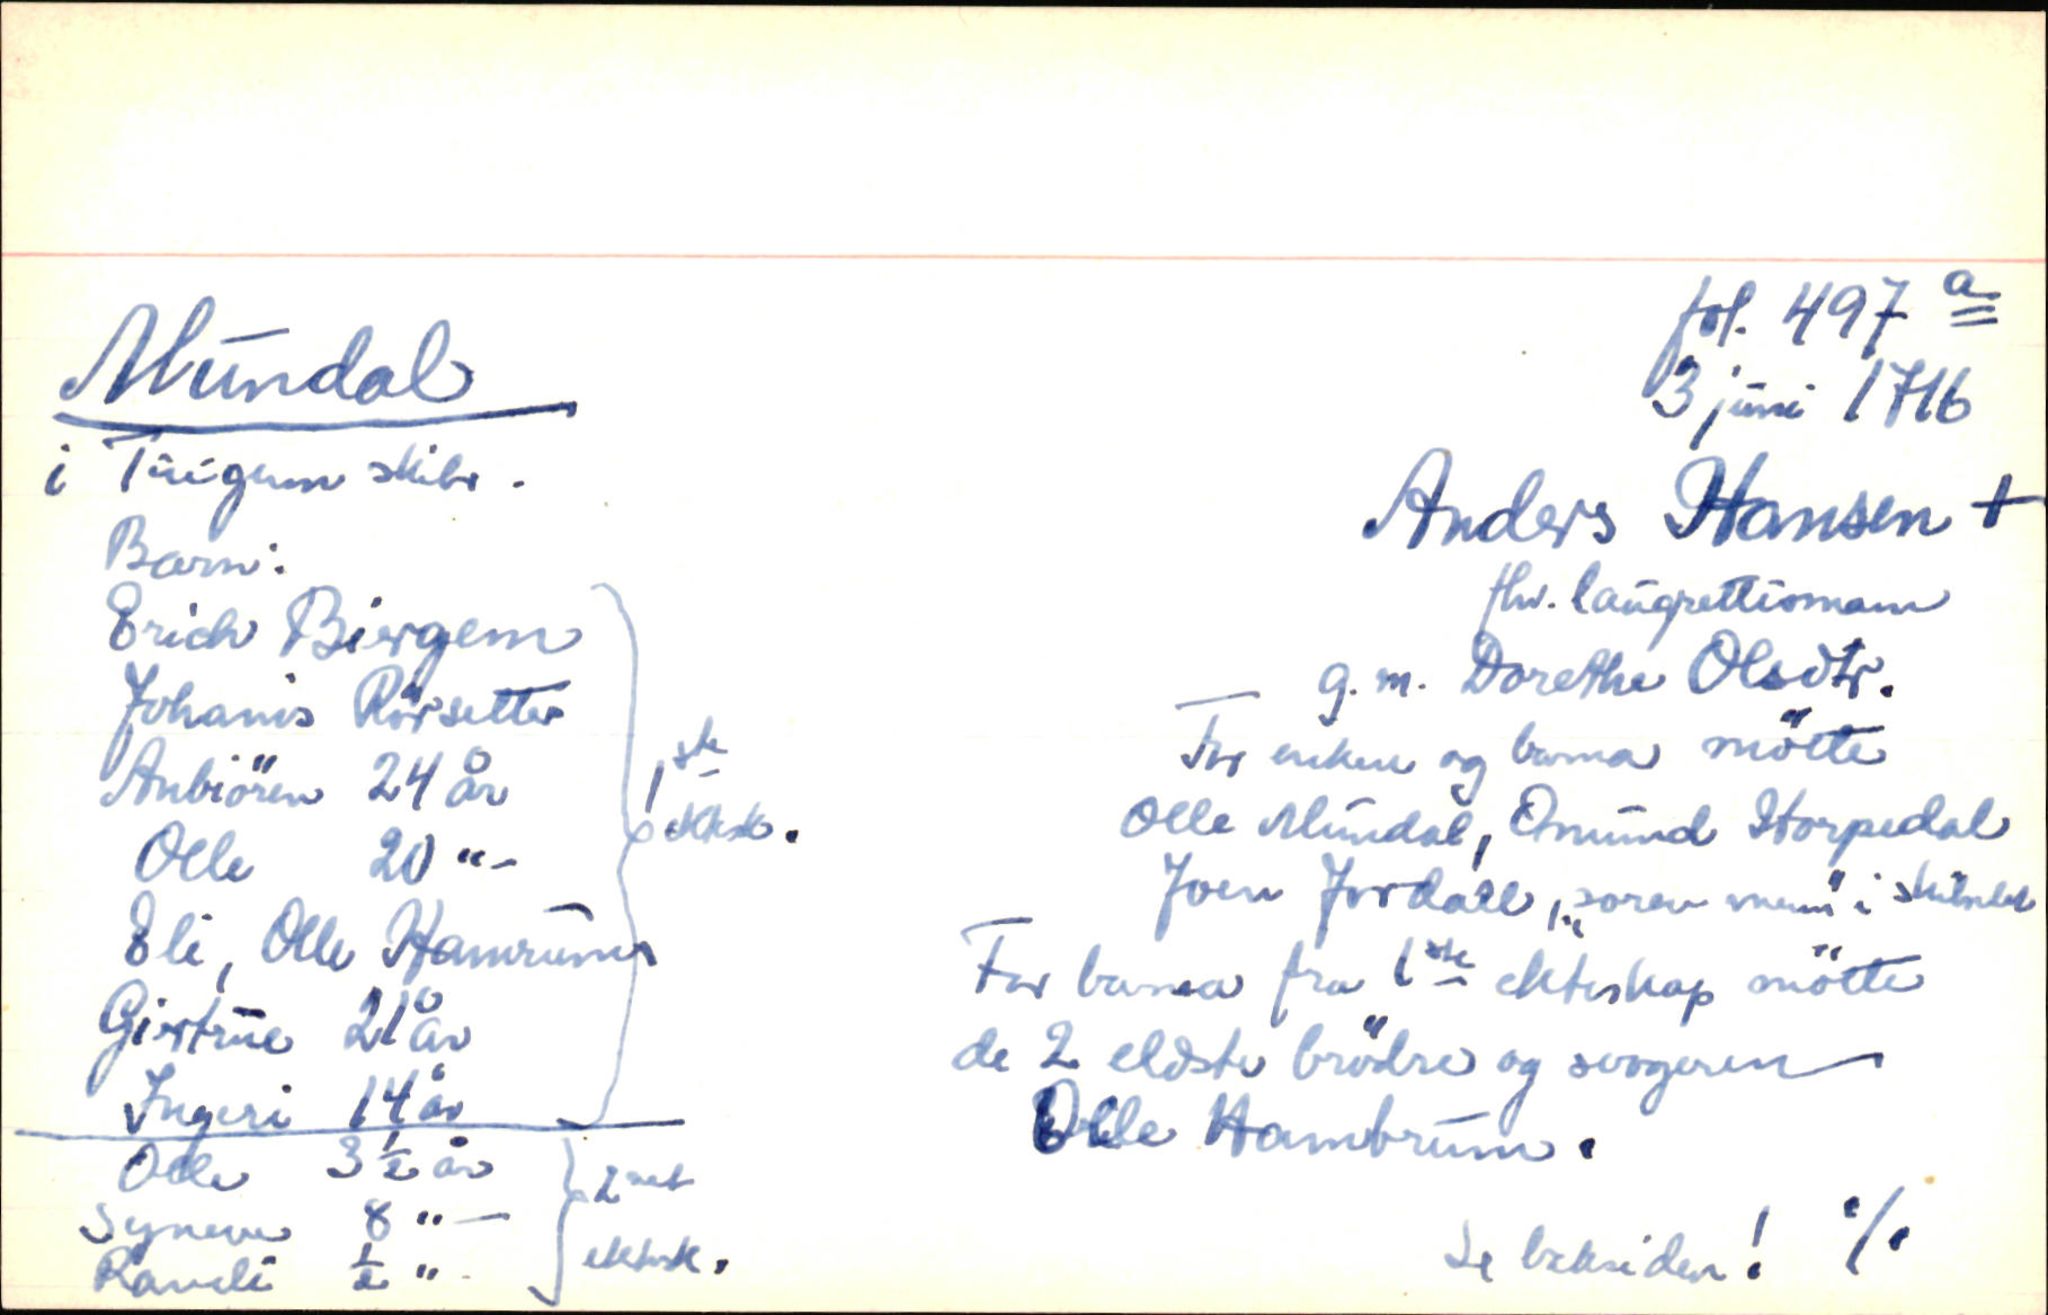 fol. 497 a
3 juni 1716
Mundal
i Tuigum skibr.
Anders Hansen +
fhv. laugrettismann
g. m. Dorethe Olsdtr.
For enken og barna mötte
Olle Mundal, Omund Horpedal
Joen Jordall, "soren menn" i
For barna fra 1ste ekteskap mötte
de 2 eldste brödre og svogeren
Olle Hambrum.
Se baksiden! ./.
Barn:
Erich Biergem
Johanis Rörsetter
Anbiören 24 år
Olle 20 "-
Eli, Olle Hamrums
Giertrue 21 år
Ingeri 14 år
1ste ektsk.
Olle 3 1/2 år
Syneve 8 "-
Randi 1/2 "
2net ektesk.